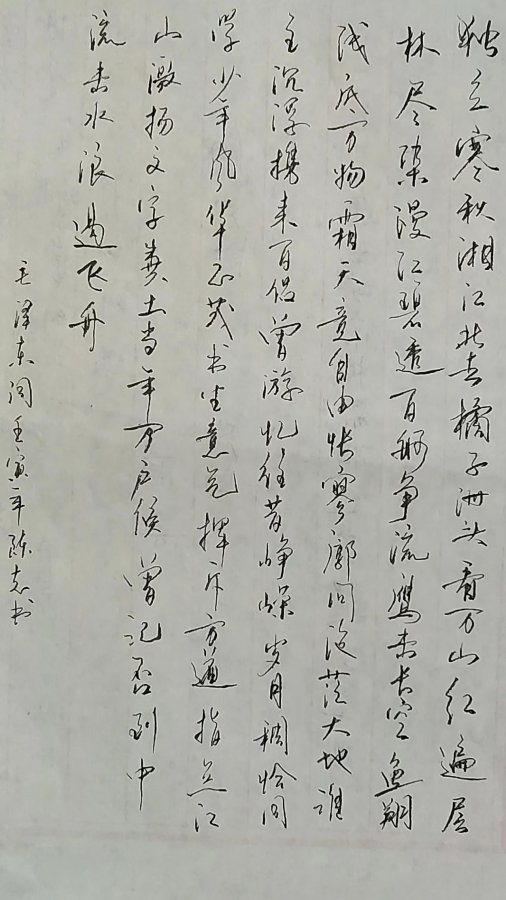 独立寒秋湘江北去橘子洲头看万山红遍层
林尽染漫江碧透百舸争流鹰击长空鱼翔
浅底万物霜天竞自由怅寥廓问沧茫大地谁
主沉浮携来百侣曾游忆往昔峥嵘岁月稠恰同
学少年风华正茂书生意气挥斥方遒指点江
山激扬文字粪土当年万户候曾记否到中
流击水浪遏飞舟
毛泽东词壬寅年陈志书